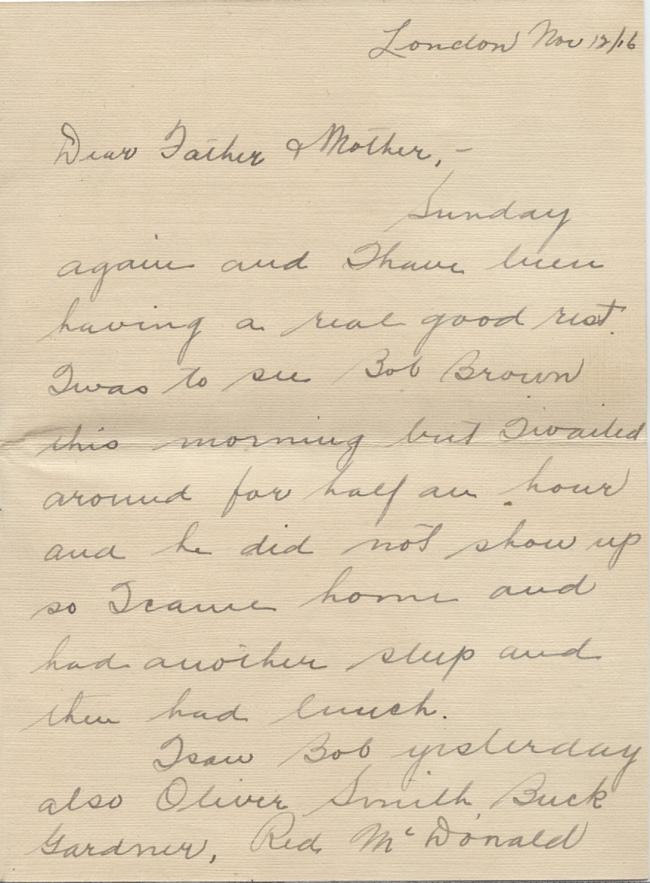 London Nov 12/16
Dear Father & Mother, -
Sunday
again and I have been
having a real good rest.
I was to see Bob Brown
this morning but I waited
around for half an hour
and he did not show up
so I came home and
had another sleep and
then had lunch.
I saw Bob yesterday
also Oliver Smith, Buck
Gardner, Red McDonald